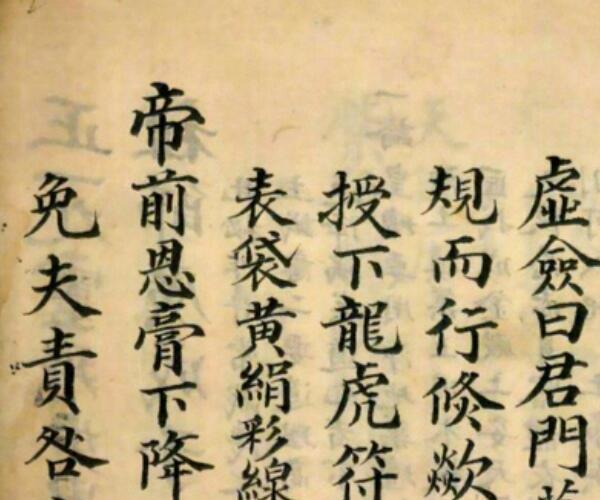 虛僉曰君門
規而行倏歘
授下龍虎符
表袋黄絹彩線
帝前恩膏下降
免夫責咎